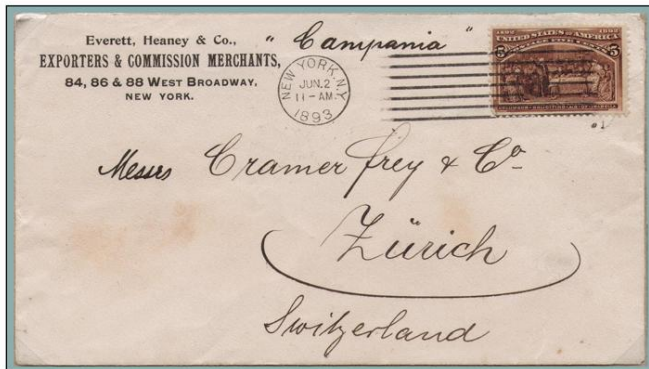 Everett, Heaney & Co.,
EXPORTERS & COMMISSION MERCHANTS,
84, 86 & 88 WEST BROADWAY.
NEW YORK.
" Campania "
NEW YORK, N.Y.
JUN. 2
11-AM.
1893
1892 1892
UNITED STATES OF AMERICA
5 5
Messrs Cramer frey & Co
Zürich
Switzerland